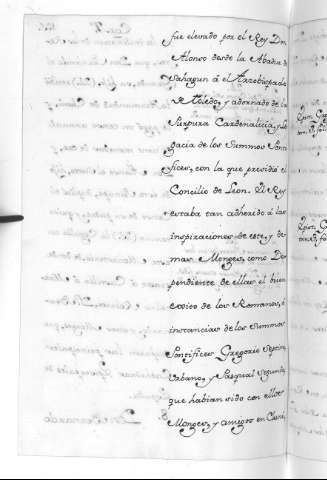 fue elevado por el Rey Dn.
Alonso desde la Abadia de
Sahagun á el Arzobispado
de Toledo, y adornado de la
Purpura Cardenalicia, y Le
gacia de los Summos Ponti
fices, con la que presidió el
Concilio de Leon. El Rey
estaba tan adherido á las
inspiraciones de este, y de
mas Monges, como De
pendiente de ellas el buen
exito de los Romanos, é
instancias de los Summos
Pontifices Gregorio Septimo,
Urbano, y Pasqual Segundo,
que habian sido con ellos
Monges, y amigos en Cluni,